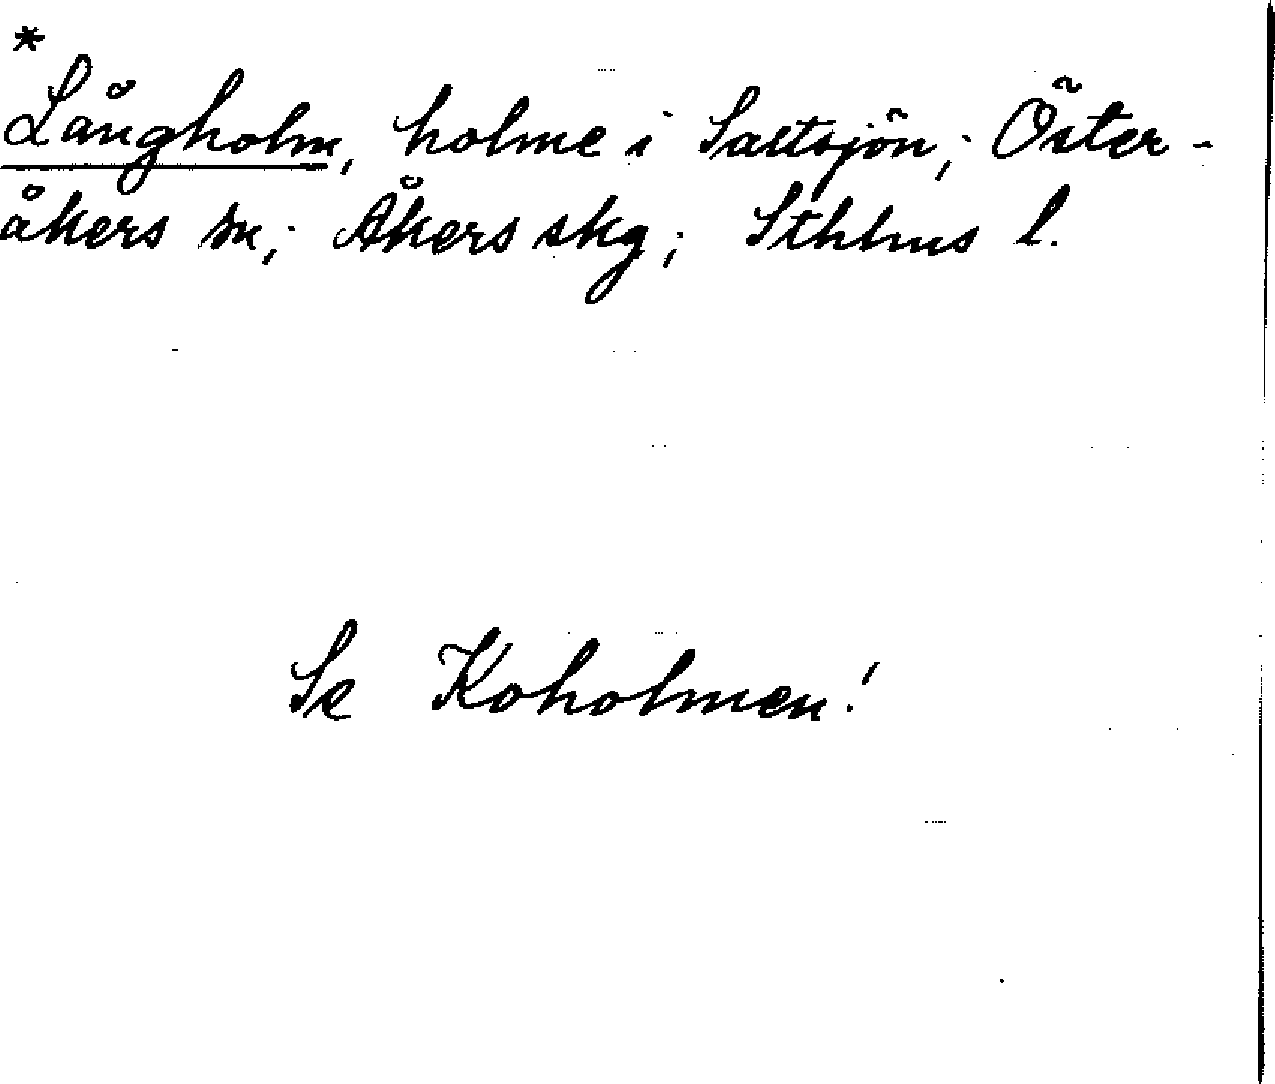 *
Långholm, holme i Saltsjön; Öster-
åkers sn; Åkers skg; Sthlms l.
Se Koholmen!